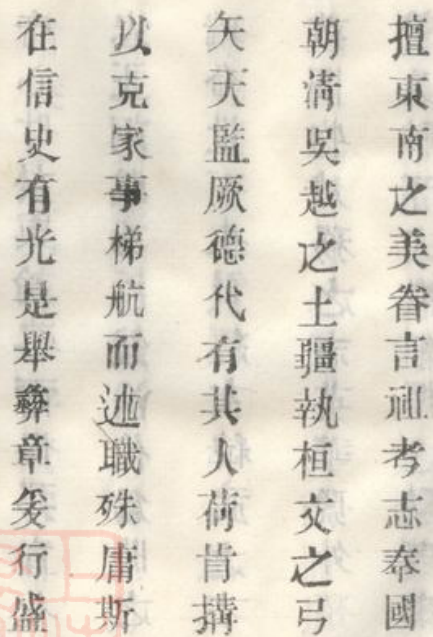 擅東南之美眷言祖考志奉國
朝淸吳越之土疆執桓文之弓
矢天監厥德代有其人荷肯搆
以克家事梯航而述職殊庸斯
在信史有光是舉彝章爰行盛